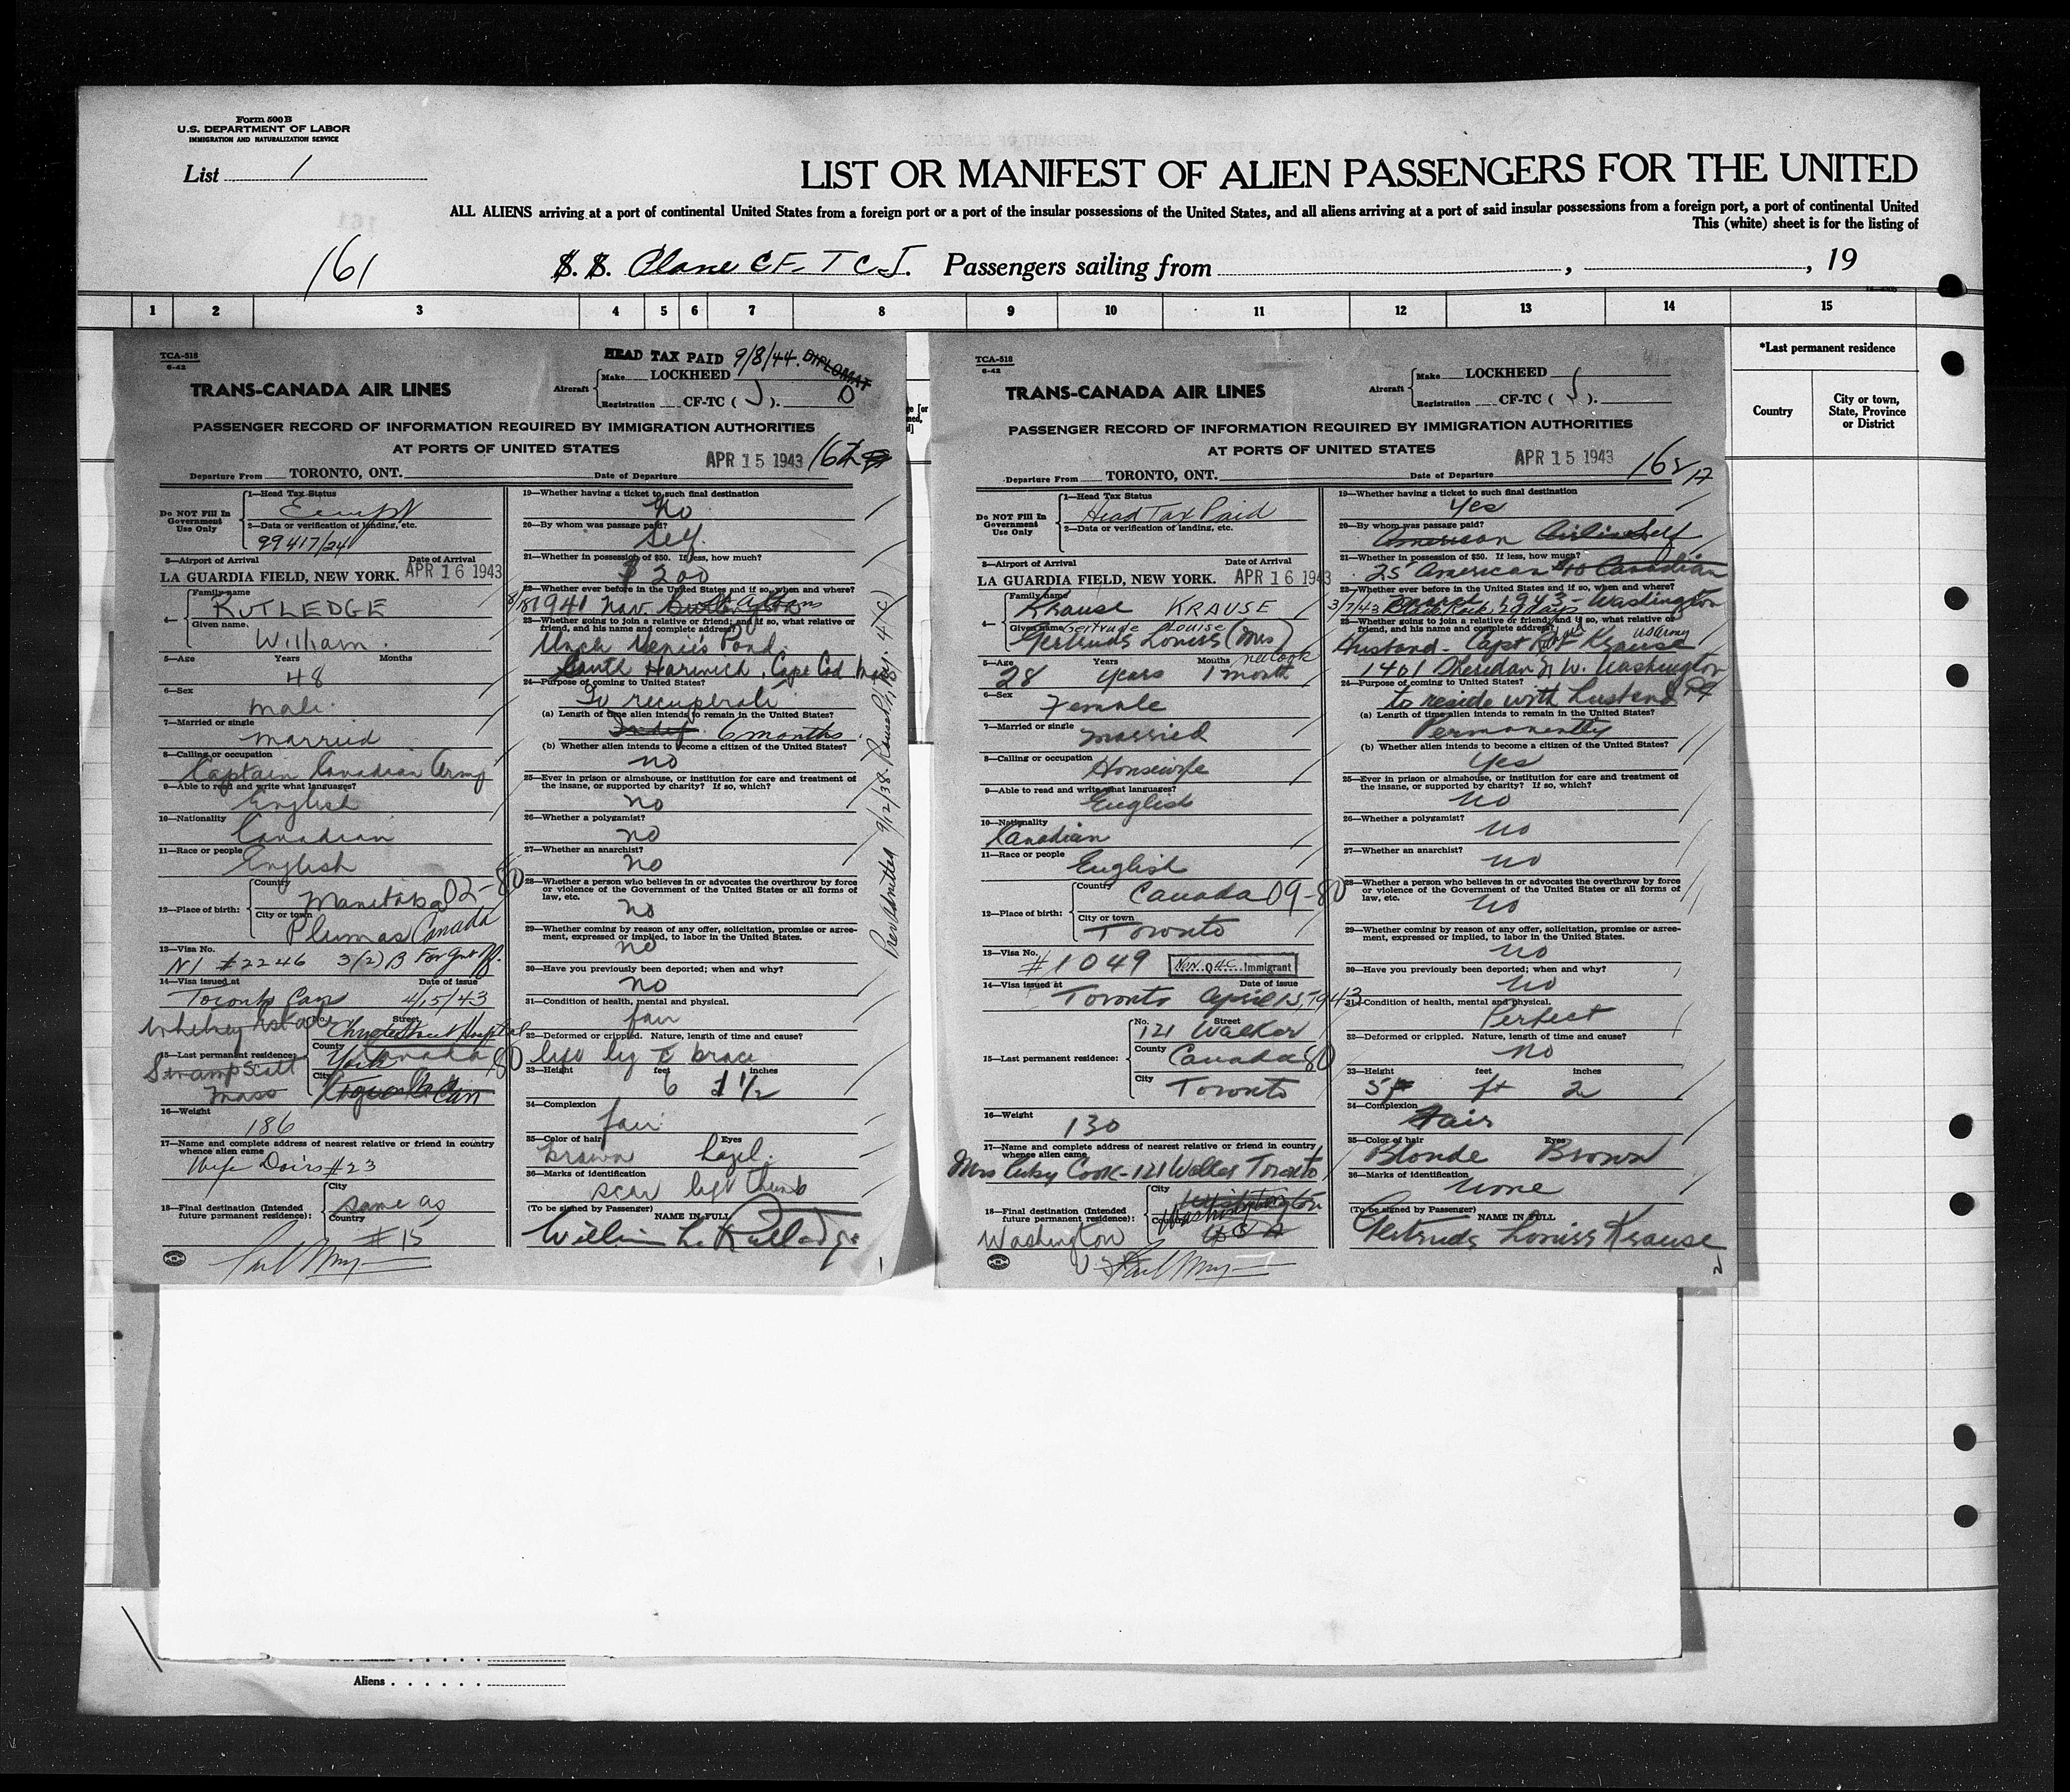 Form 500 B
U.S. DEPARTMENT OF LABOR
IMMIGRATION AND NATURALIZATION SERVICE
List 1
LIST OR MANIFEST OF ALIEN PASSENGERS FOR THE UNITED
ALL ALIENS arriving at a port of continental United States from a foreign port or a port of the insular possessions of the United States, and all aliens arriving at a port of said insular possessions from a foreign port, a port of continental United
This (white) sheet is for the listing of
161
S. S. Plane CF-TCJ. Passengers sailing from , , 19
1 2 3 4 5 6 7 8 9 10 11 12 13 14 15
*Last permanent residence
Country
City or town, State, Province or District
TCA-518
6-42
HEAD TAX PAID 9/8/44. DIPLOMAT
TRANS-CANADA AIR LINES
Aircraft
Make LOCKHEED
Registration CF-TC ( J ).
PASSENGER RECORD OF INFORMATION REQUIRED BY IMMIGRATION AUTHORITIES
AT PORTS OF UNITED STATES
APR 15 1943
Departure From TORONTO, ONT. Date of Departure
Do NOT Fill In Government Use Only
1—Head Tax Status
Exempt
2—Data or verification of landing, etc.
99417/24
3—Airport of Arrival Date of Arrival
LA GUARDIA FIELD, NEW YORK. APR 16 1943
4—
Family name
RUTLEDGE
Given name
William.
5—Age Years Months
48
6—Sex
male
7—Married or single
married
8—Calling or occupation
Captain Canadian Army
9—Able to read and write what languages?
English
10—Nationality
Canadian
11—Race or people
English
12—Place of birth:
Country
Manitoba 02-80
City or town
Plumas Canada
13—Visa No.
#2246 3(2)B
14—Visa issued at Date of issue
Toronto Can 4/15/43
15—Last permanent residence:
No. Street
Christie Street Hospital
County
York Canada 80
City
Swampscott
Mass
16—Weight
186
17—Name and complete address of nearest relative or friend in country whence alien came
Wife Doris #23
18—Final destination (Intended future permanent residence):
City
same as
Country
#15
19—Whether having a ticket to such final destination
No
20—By whom was passage paid?
Self.
21—Whether in possession of $50. If less, how much?
$200
22—Whether ever before in the United States and if so, when and where?
1941 Nov. St Albans
23—Whether going to join a relative or friend; and if so, what relative or friend, and his name and complete address?
Uncle Venies Pond
South Harwich, Cape Cod Mass
24—Purpose of coming to United States?
To recuperate
(a) Length of time alien intends to remain in the United States?
Indef. 6 months
(b) Whether alien intends to become a citizen of the United States?
no
25—Ever in prison or almshouse, or institution for care and treatment of the insane, or supported by charity? If so, which?
no
26—Whether a polygamist?
no
27—Whether an anarchist?
no
28—Whether a person who believes in or advocates the overthrow by force or violence of the Government of the United States or all forms of law, etc.
no
29—Whether coming by reason of any offer, solicitation, promise or agreement, expressed or implied, to labor in the United States.
no
30—Have you previously been deported; when and why?
no
31—Condition of health, mental and physical.
fair
32—Deformed or crippled. Nature, length of time and cause?
left leg c brace
33—Height feet inches
6 1 1/2
34—Complexion
fair
35—Color of hair Eyes
brown hazel.
36—Marks of identification
scar left thumb
(To be signed by Passenger) NAME IN FULL
William L. Rutledge
1
TCA-518
6-42
TRANS-CANADA AIR LINES
Aircraft
Make LOCKHEED
Registration CF-TC ( J ).
PASSENGER RECORD OF INFORMATION REQUIRED BY IMMIGRATION AUTHORITIES
AT PORTS OF UNITED STATES
APR 15 1943
Departure From TORONTO, ONT. Date of Departure
Do NOT Fill In Government Use Only
1—Head Tax Status
Head Tax Paid
2—Data or verification of landing, etc.
3—Airport of Arrival Date of Arrival
LA GUARDIA FIELD, NEW YORK. APR 16 1943
4—
Family name
Krause KRAUSE
Given name Gertrude Louise
Gertrude Louise (Mrs)
nee Cook
5—Age Years Months
28 years 1 month
6—Sex
Female
7—Married or single
married
8—Calling or occupation
Housewife
9—Able to read and write what languages?
English
10—Nationality
Canadian
11—Race or people
English
12—Place of birth:
Country
Canada 09-80
City or town
Toronto
13—Visa No.
#1049 Immigrant
14—Visa issued at Date of issue
Toronto April 15, 1943
15—Last permanent residence:
No. Street
121 Walker
County
Canada 80
City
Toronto
16—Weight
130
17—Name and complete address of nearest relative or friend in country whence alien came
Mrs Cook - 121 Walker Toronto
18—Final destination (Intended future permanent residence):
City
Washington
Country
USA
Washington
19—Whether having a ticket to such final destination
Yes
20—By whom was passage paid?
American Airlines Self
21—Whether in possession of $50. If less, how much?
25 American $10 Canadian
22—Whether ever before in the United States and if so, when and where?
3/7/43 1943 - Washington
23—Whether going to join a relative or friend; and if so, what relative or friend, and his name and complete address?
Husband - Capt Krause US Army
1401 Sheridan N.W. Washington
24—Purpose of coming to United States?
to reside with husband
(a) Length of time alien intends to remain in the United States?
Permanently
(b) Whether alien intends to become a citizen of the United States?
Yes
25—Ever in prison or almshouse, or institution for care and treatment of the insane, or supported by charity? If so, which?
no
26—Whether a polygamist?
no
27—Whether an anarchist?
no
28—Whether a person who believes in or advocates the overthrow by force or violence of the Government of the United States or all forms of law, etc.
no
29—Whether coming by reason of any offer, solicitation, promise or agreement, expressed or implied, to labor in the United States.
no
30—Have you previously been deported; when and why?
no
31—Condition of health, mental and physical.
Perfect
32—Deformed or crippled. Nature, length of time and cause?
no
33—Height feet inches
5 ft 2
34—Complexion
Fair
35—Color of hair Eyes
Blonde Brown
36—Marks of identification
none
(To be signed by Passenger) NAME IN FULL
Gertrude Louise Krause
2
Aliens